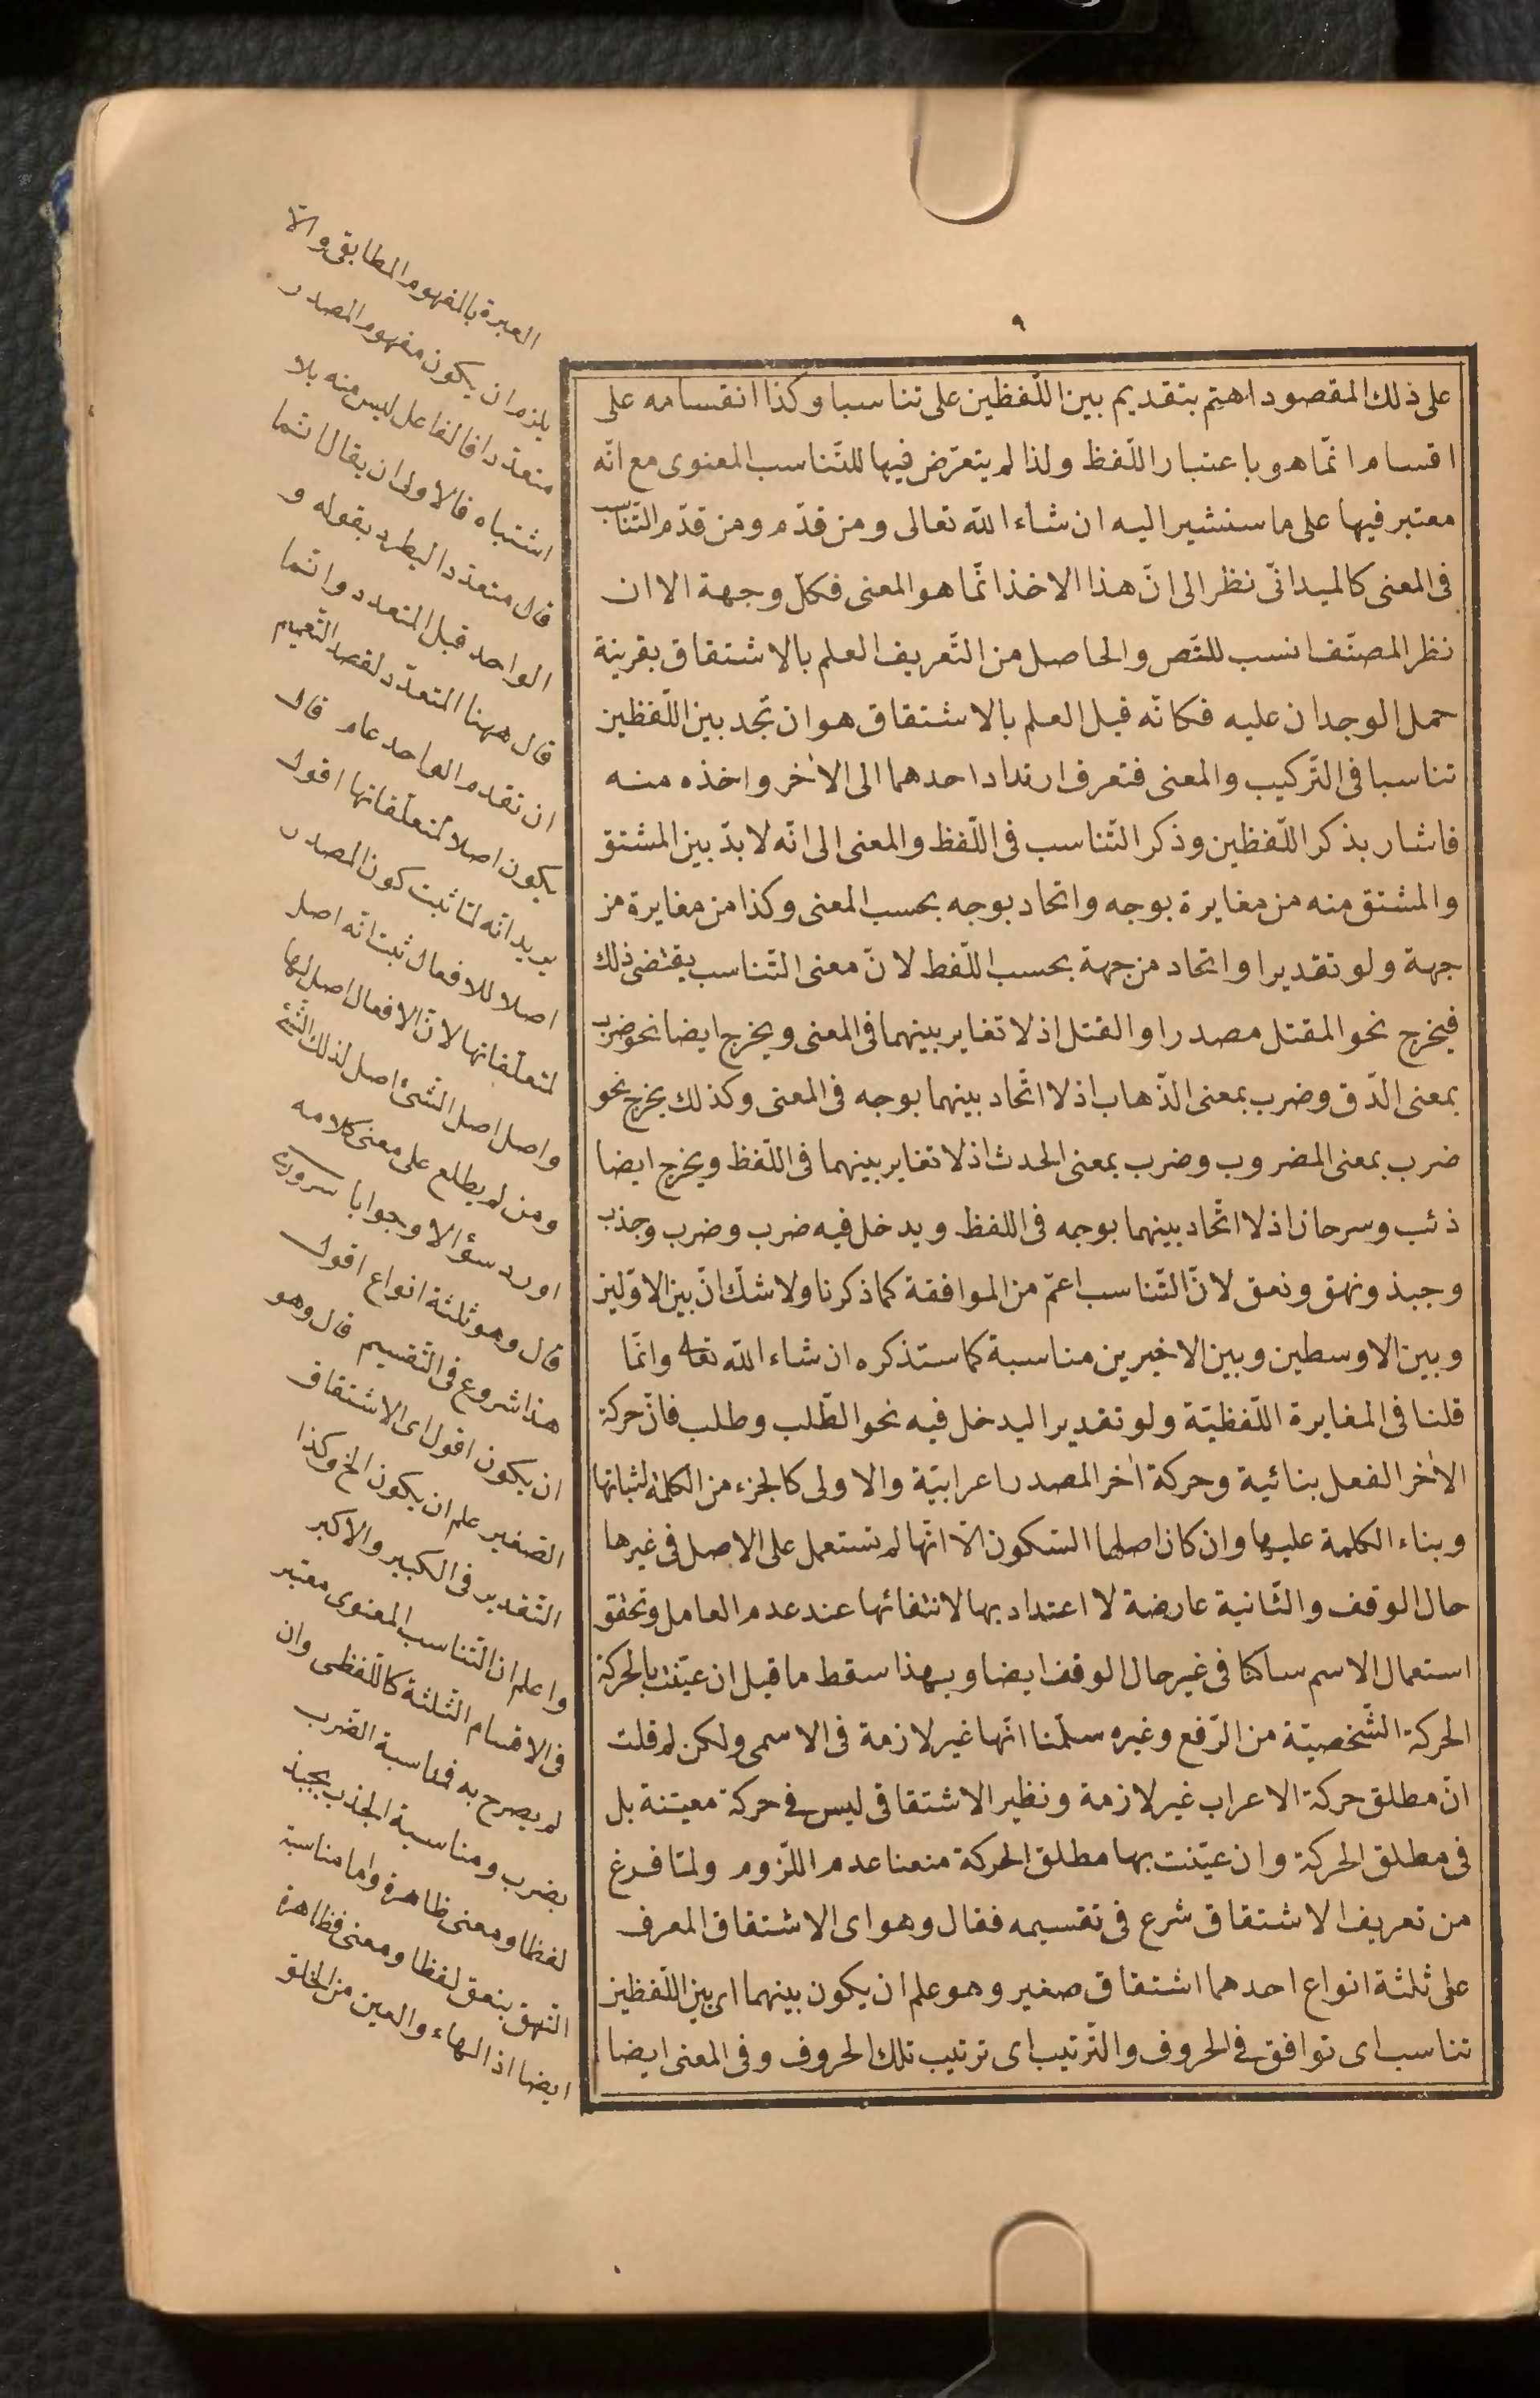 ٩
على ذلك المقصود اهتم بتقديم بين اللّفظين على تناسبا وكذا انقسامه على
اقسام انّما هو باعتبار اللّفظ ولذا لم يتعرّض فيها للتّناسب المعنوى مع انّه
معتبر فيها على ما سنشير اليه ان شاء اللّه تعالى ومن قدّم ومن قدّم التّناسب
فى المعنى كالميدانّى نظر الى انّ هذا الاخذ انّما هو المعنى فكلّ وجهة الا ان
نظر المصنّف انسب للنّص والحاصل من التّعريف العلم بالاشتقاق بقرينة
حمل الوجدان عليه فكانّه قيل العلم بالاشتقاق هو ان تجد بين اللّفظين
تناسبا فى التّركيب والمعنى فتعرف ارتداد احدهما الى الاٰخر واخذه منه
فاشار بذكر اللّفظين وذكر التّناسب فى اللّفظ والمعنى الى انّه لا بدّ بين المشتق
والمشتق منه من مغايرة بوجه واتحاد بوجه بحسب المعنى وكذا من مغايرة من
جهة ولو تقديرا واتحاد من جهة بحسب اللّفظ لانّ معنى التّناسب يقتضى ذلك
فيخرج نحو المقتل مصدرا والقتل اذ لا تغاير بينهما فى المعنى ويخرج ايضا نحو ضرب
بمعنى الدّق وضرب بمعنى الذّهاب اذ لا اتّحاد بينهما بوجه فى المعنى وكذلك يخرج نحو
ضرب بمعنى المضروب وضرب بمعنى الحدث اذ لا تغاير بينهما فى اللّفظ ويخرج ايضا
ذئب وسرحان اذ لا اتّحاد بينهما بوجه فى اللفظ ويدخل فيه ضرب وضرب وجذب
وجبذ ونهق ونعق لانّ التّناسب اعمّ من الموافقة كما ذكرنا ولا شكّ انّ بين الاوّلين
وبين الاوسطين وبين الاخيرين مناسبة كما ستذكره ان شاء اللّه تعالى وانّما
قلنا فى المغايرة اللّفظيّة ولو تقديرا ليدخل فيه نحو الطّلب وطلب فانّ حركة
الاٰخر الفعل بنائية وحركة اٰخر المصدر اعرابيّة والاولى كالجزء من الكلمة لثباتها
وبناء الكلمة عليها وان كان اصلها السّكون الّا انّها لم تستعمل على الاصل فى غيرها
حال الوقف والثّانية عارضة لا اعتداد بها لانتفائها عند عدم العامل وتحقق
استعمال الاسم ساكنا فى غير حال الوقف ايضا وبهذا سقط ما قيل ان عيّنت بالحركة
الحركة الشّخصيّة من الرّفع وغيره سلّمنا انّها غير لازمة فى الاسمى ولكن لم قلت
انّ مطلق حركة الاعراب غير لازمة ونظير الاشتقاقى ليس فى حركة معيّنة بل
فى مطلق الحركة وان عيّنت بها مطلق الحركة منعنا عدم اللّزوم ولمّا فرغ
من تعريف الاشتقاق شرع فى تقسيمه فقال وهو اى الاشتقاق المعرف
على ثلثة انواع احدهما اشتقاق صغير وهو علم ان يكون بينهما اى بين اللّفظين
تناسب اى توافق فى الحروف والتّرتيب اى ترتيب تلك الحروف وفى المعنى ايضا
العبرة بالمفهوم المطابقى والّا
يلزم ان يكون مفهوم المصدر
متعدّدا فالفاعل ليس منه بلا
اشتباه فالاولى ان يقال انّما
قال متعدّدا ليطرد بقوله و
الواحد قبل المتعدد وانّما
قال ههنا المتعدّد لقصد التّعميم
ان تقدم الواحد عام قال
يكون اصلا لمتعلّقاتها اقول
يريد انّه لمّا ثبت كون المصدر
اصلا للافعال ثبت انّه اصل
لمتعلّقاتها لانّ الافعال اصل لها
واصل اصل الشّئ اصل لذلك الشّئ
ومن لم يطلع على معنى كلامه
اورد سؤالا وجوابا سرورى
قال وهو ثلثة انواع اقول
هذا شروع فى التّقسيم قال وهو
ان يكون اقول اى الاشتقاق
الصّغير علم ان يكون الخ وكذا
التّقدير فى الكبير والاكبر
واعلم ان التّناسب المعنوى معتبر
فى الاقسام الثّلثة كاللّفظى وان
لم يصرح به فمناسبة الضّرب
بضرب ومناسبة الجذب بجبذ
لفظا ومعنى ظاهرة واما مناسبة
النّهق بنعق لفظا ومعنى فظاهرة
ايضا اذ الهاء والعين من الحلق